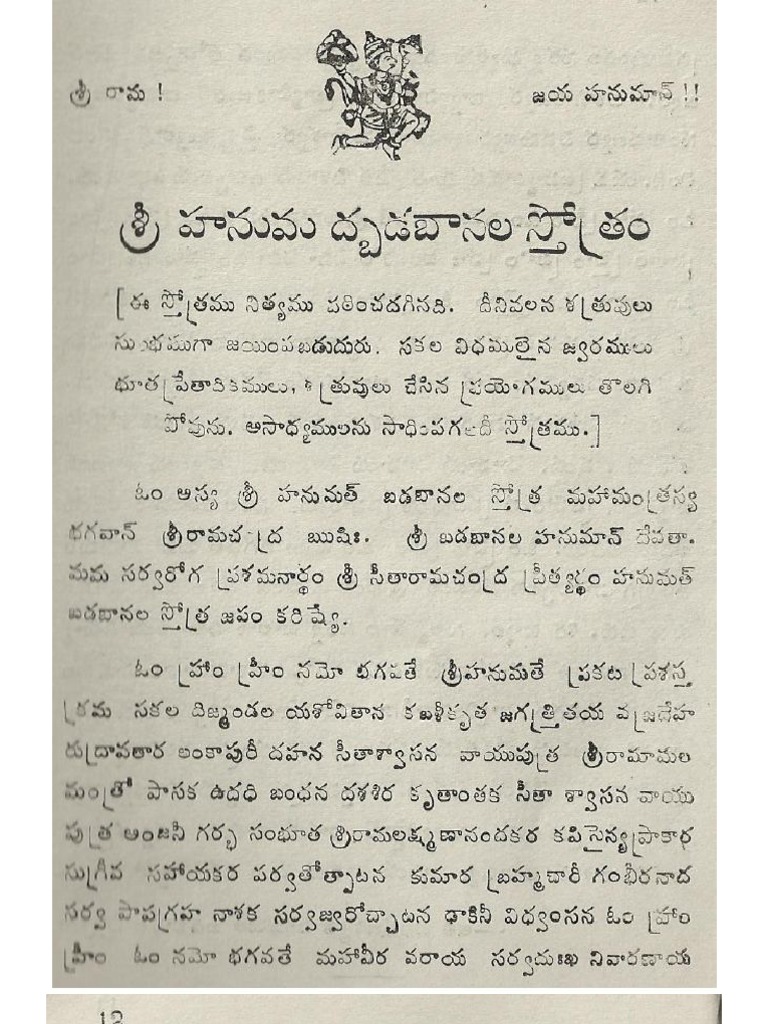 శ్రీ రామ !
జయ హనుమాన్ !!
శ్రీ హనుమ ద్బడబానల స్తోత్రం
[ ఈ స్తోత్రము నిత్యము పఠించదగినది. దీనివలన శత్రువులు
సులభముగా జయింపబడుదురు. సకల విధములైన జ్వరములు
భూత ప్రేతాదికములు, శత్రువులు చేసిన ప్రయోగములు తొలగి
పోవును. అసాధ్యములను సాధింపగలదీ స్తోత్రము. ]
ఓం అస్య శ్రీ హనుమత్ బడబానల స్తోత్ర మహామంత్రస్య
భగవాన్ శ్రీరామచంద్ర ఋషిః. శ్రీ బడబానల హనుమాన్ దేవతా.
మమ సర్వరోగ ప్రశమనార్థం శ్రీ సీతారామచంద్ర ప్రీత్యర్థం హనుమత్
బడబానల స్తోత్ర జపం కరిష్యే.
ఓం హ్రాం హ్రీం నమో భగవతే శ్రీహనుమతే ప్రకట ప్రశస్త
క్రమ సకల దిఙ్మండల యశోవితాన కబళీకృత జగత్త్రితయ వజ్రదేహ
రుద్రావతార లంకాపురీ దహన సీతాశ్వాసన వాయుపుత్ర శ్రీరామామల
మంత్రో పాసక ఉదధి బంధన దశశిర కృతాంతక సీతా శ్వాసన వాయు
పుత్ర అంజనీ గర్భ సంభూత శ్రీరామలక్ష్మణానందకర కపిసైన్యప్రాకార
సుగ్రీవ సహాయకర పర్వతోత్పాటన కుమార బ్రహ్మచారీ గంభీరనాద
సర్వ పాపగ్రహ నాశక సర్వజ్వరోచ్చాటన ఢాకినీ విధ్వంసన ఓం హ్రాం
హ్రీం ఓం నమో భగవతే మహావీర వరాయ సర్వదుఃఖ నివారణాయ
12